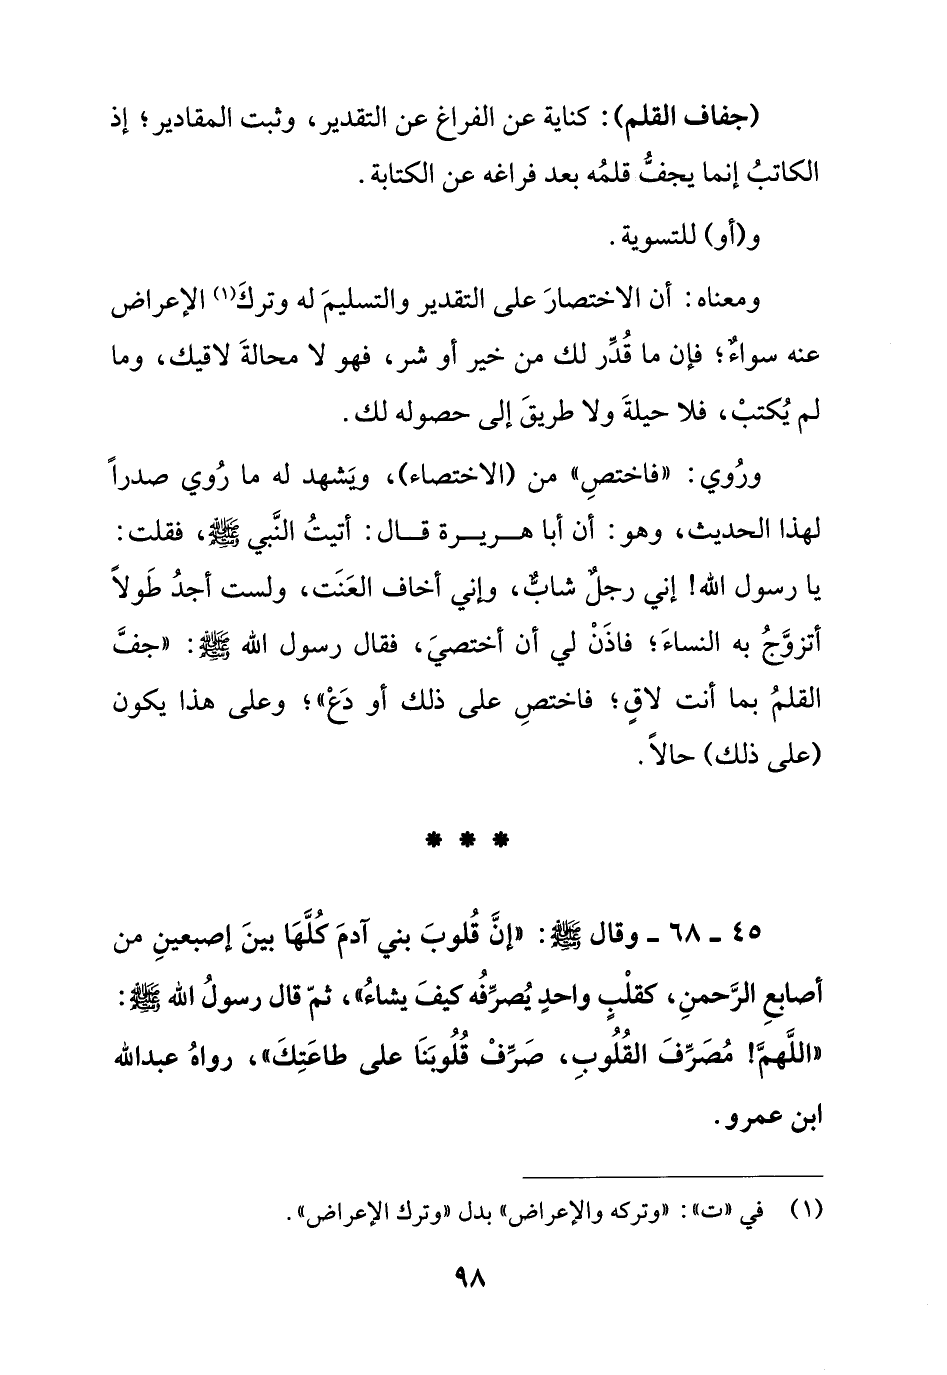 (جفاف القلم): كناية عن الفراغ عن التقدير، وثبت المقادير؛ إذ
الكاتبُ إنما يجفُّ قلمُه بعد فراغه عن الكتابة.
و(أو) للتسوية.
ومعناه: أن الاختصارَ على التقدير والتسليمَ له وتركَ(١) الإعراض
عنه سواءٌ؛ فإن ما قُدِّر لك من خير أو شر، فهو لا محالةَ لاقيك، وما
لم يُكتبْ، فلا حيلةَ ولا طريقَ إلى حصوله لك.
ورُوي: «فاختصِ» من (الاختصاء)، ويَشهد له ما رُوي صدراً
لهذا الحديث، وهو: أن أبا هـريـرة قـال: أتيتُ النَّبي ﷺ، فقلت:
يا رسول الله! إني رجلٌ شابٌّ، وإني أخاف العَنَت، ولست أجدُ طَولاً
أتزوَّجُ به النساءَ؛ فاذَنْ لي أن أختصيَ، فقال رسول الله ﷺ: «جفَّ
القلمُ بما أنت لاقٍ؛ فاختصِ على ذلك أو دَعْ»؛ وعلى هذا يكون
(على ذلك) حالاً.
* * *
٤٥ ـ ٦٨ ـ وقال ﷺ: «إنَّ قُلوبَ بني آدمَ كُلَّهَا بينَ إصبعينِ من
أصابعِ الرَّحمنِ، كقلْبٍ واحدٍ يُصرِّفُه كيفَ يشاءُ»، ثمّ قال رسولُ الله ﷺ:
«اللَّهمَّ! مُصَرِّفَ القُلُوبِ، صَرِّفْ قُلُوبَنَا على طاعَتِكَ»، رواهُ عبدالله
ابن عمرو.
(١) في «ت»: «وتركه والإعراض» بدل «وترك الإعراض».
٩٨